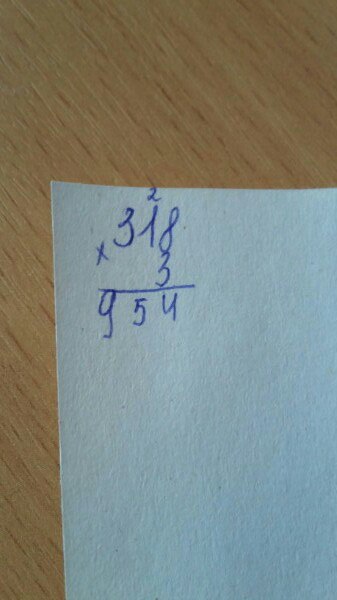 2
318
×
3
954